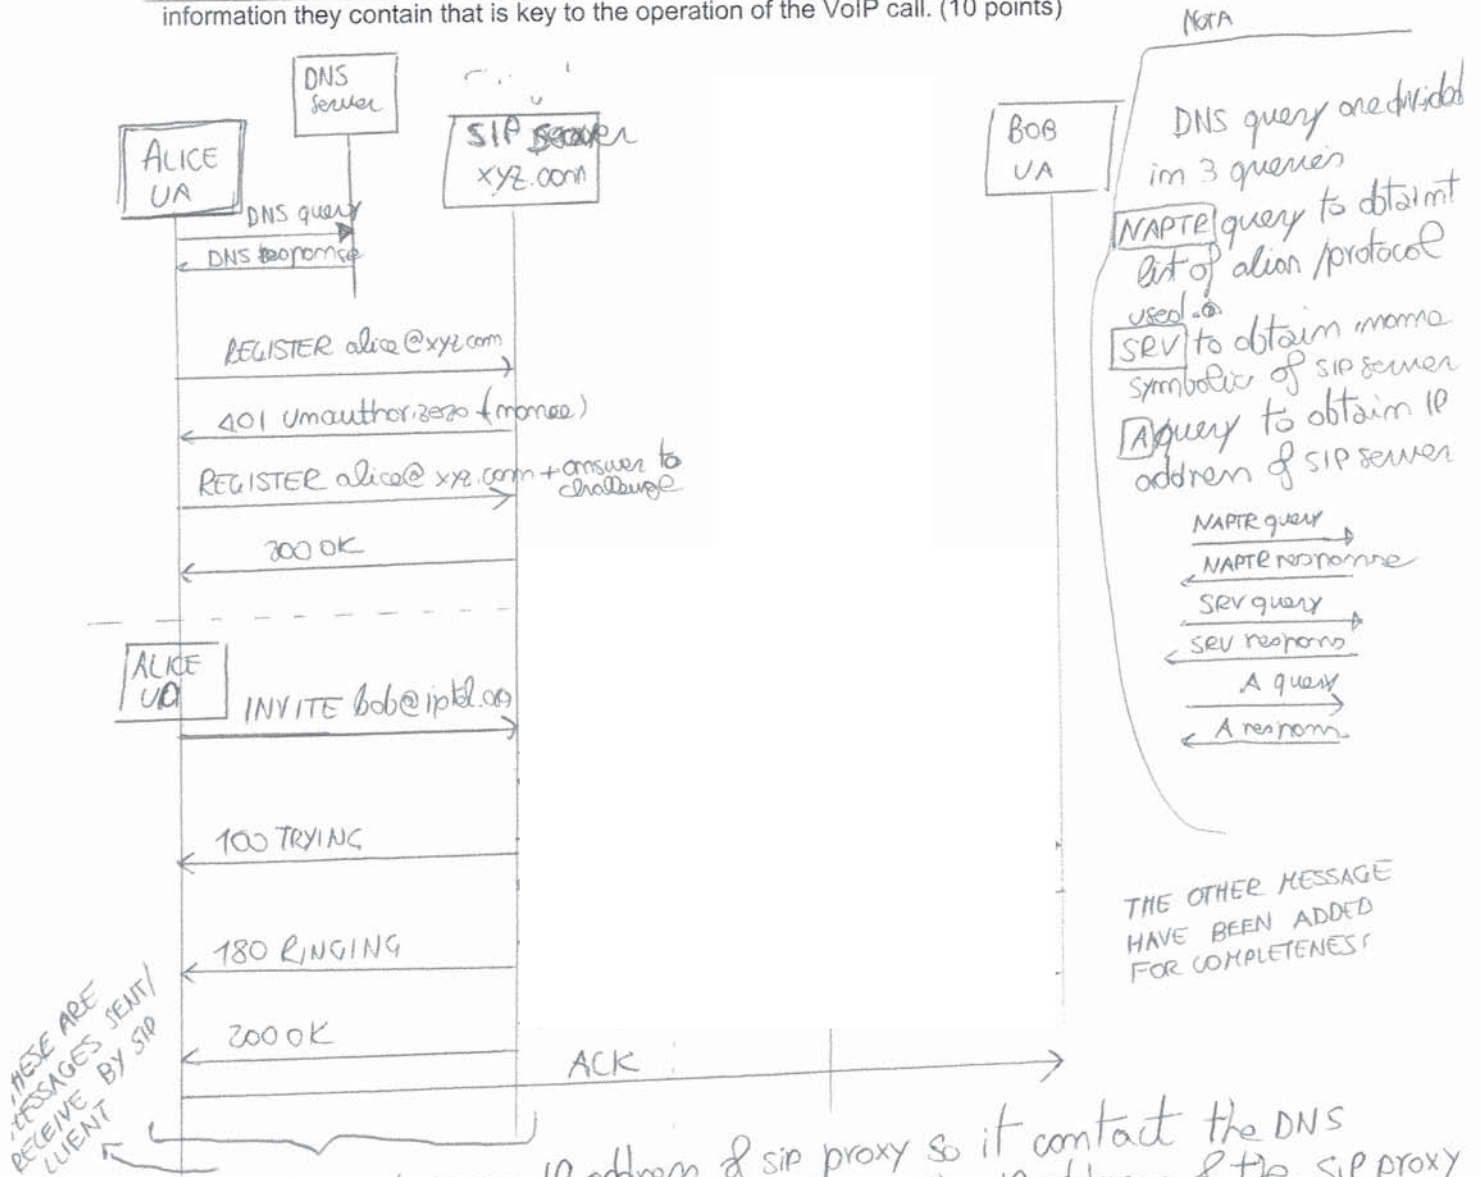 information they contain that is key to the operation of the VoIP call. (10 points)
NOTA
DNS
Server
ALICE
UA
SIP server
xyz.com
BOB
UA
DNS query
DNS response
REGISTER alice@xyz.com
401 Unauthorized (nonce)
REGISTER alice@xyz.com + answer to
challenge
200 OK
ALICE
UA
INVITE bob@iptel.org
100 TRYING
180 RINGING
200 OK
ACK
DNS query are divided
in 3 queries
NAPTR query to obtaint
list of alias /protocol
used.
SRV to obtain
symbolic of SIP server
A query to obtain IP
address of SIP server
NAPTR query
NAPTR response
SRV query
SRV respons
A query
A respons
THE OTHER MESSAGE
HAVE BEEN ADDED
FOR COMPLETENESS
HESE ARE
ESSAGES SENT/
RECEIVE BY SIP
LIENT
IP address of sip proxy so it contact the DNS
IP address of the SIP proxy